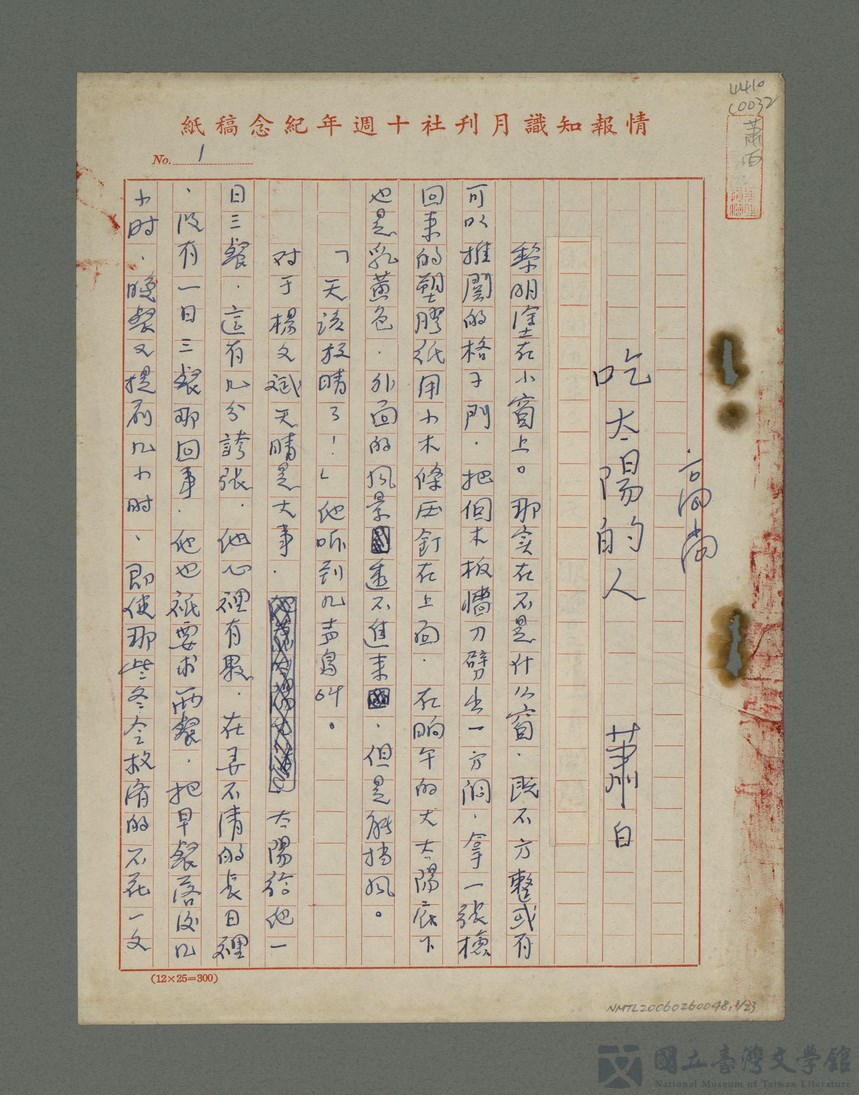 情報知識月刊社十週年紀念稿紙
No. 1
蕭白
高尚
吃太陽的人 蕭白
黎明塗在小窗上。那实在不是什么窗．既不方整或有
可以推闔的格子門．把個木板牆刀劈出一方洞．拿一張撿
回來的塑膠紙用小木條压釘在上面．在晌午的大太陽底下
也是乳黃色．外面的风景透不進來．但是能擋风。
「天該放晴了！」他听到几声鳥叫。
对于楊文斌天晴是大事．太陽給他一
日三餐．這有几分誇張．他心裡有數．在弄不清的長日裡
．没有一日三餐那回事．他也祇要求两餐．把早餐落後几
小时．晚餐又提前几小时．即使那些冬令救濟的不花一文
(12×25=300)
NMTL20060260048,1/23
國立臺灣文學館
National Museum of Taiwan Literature